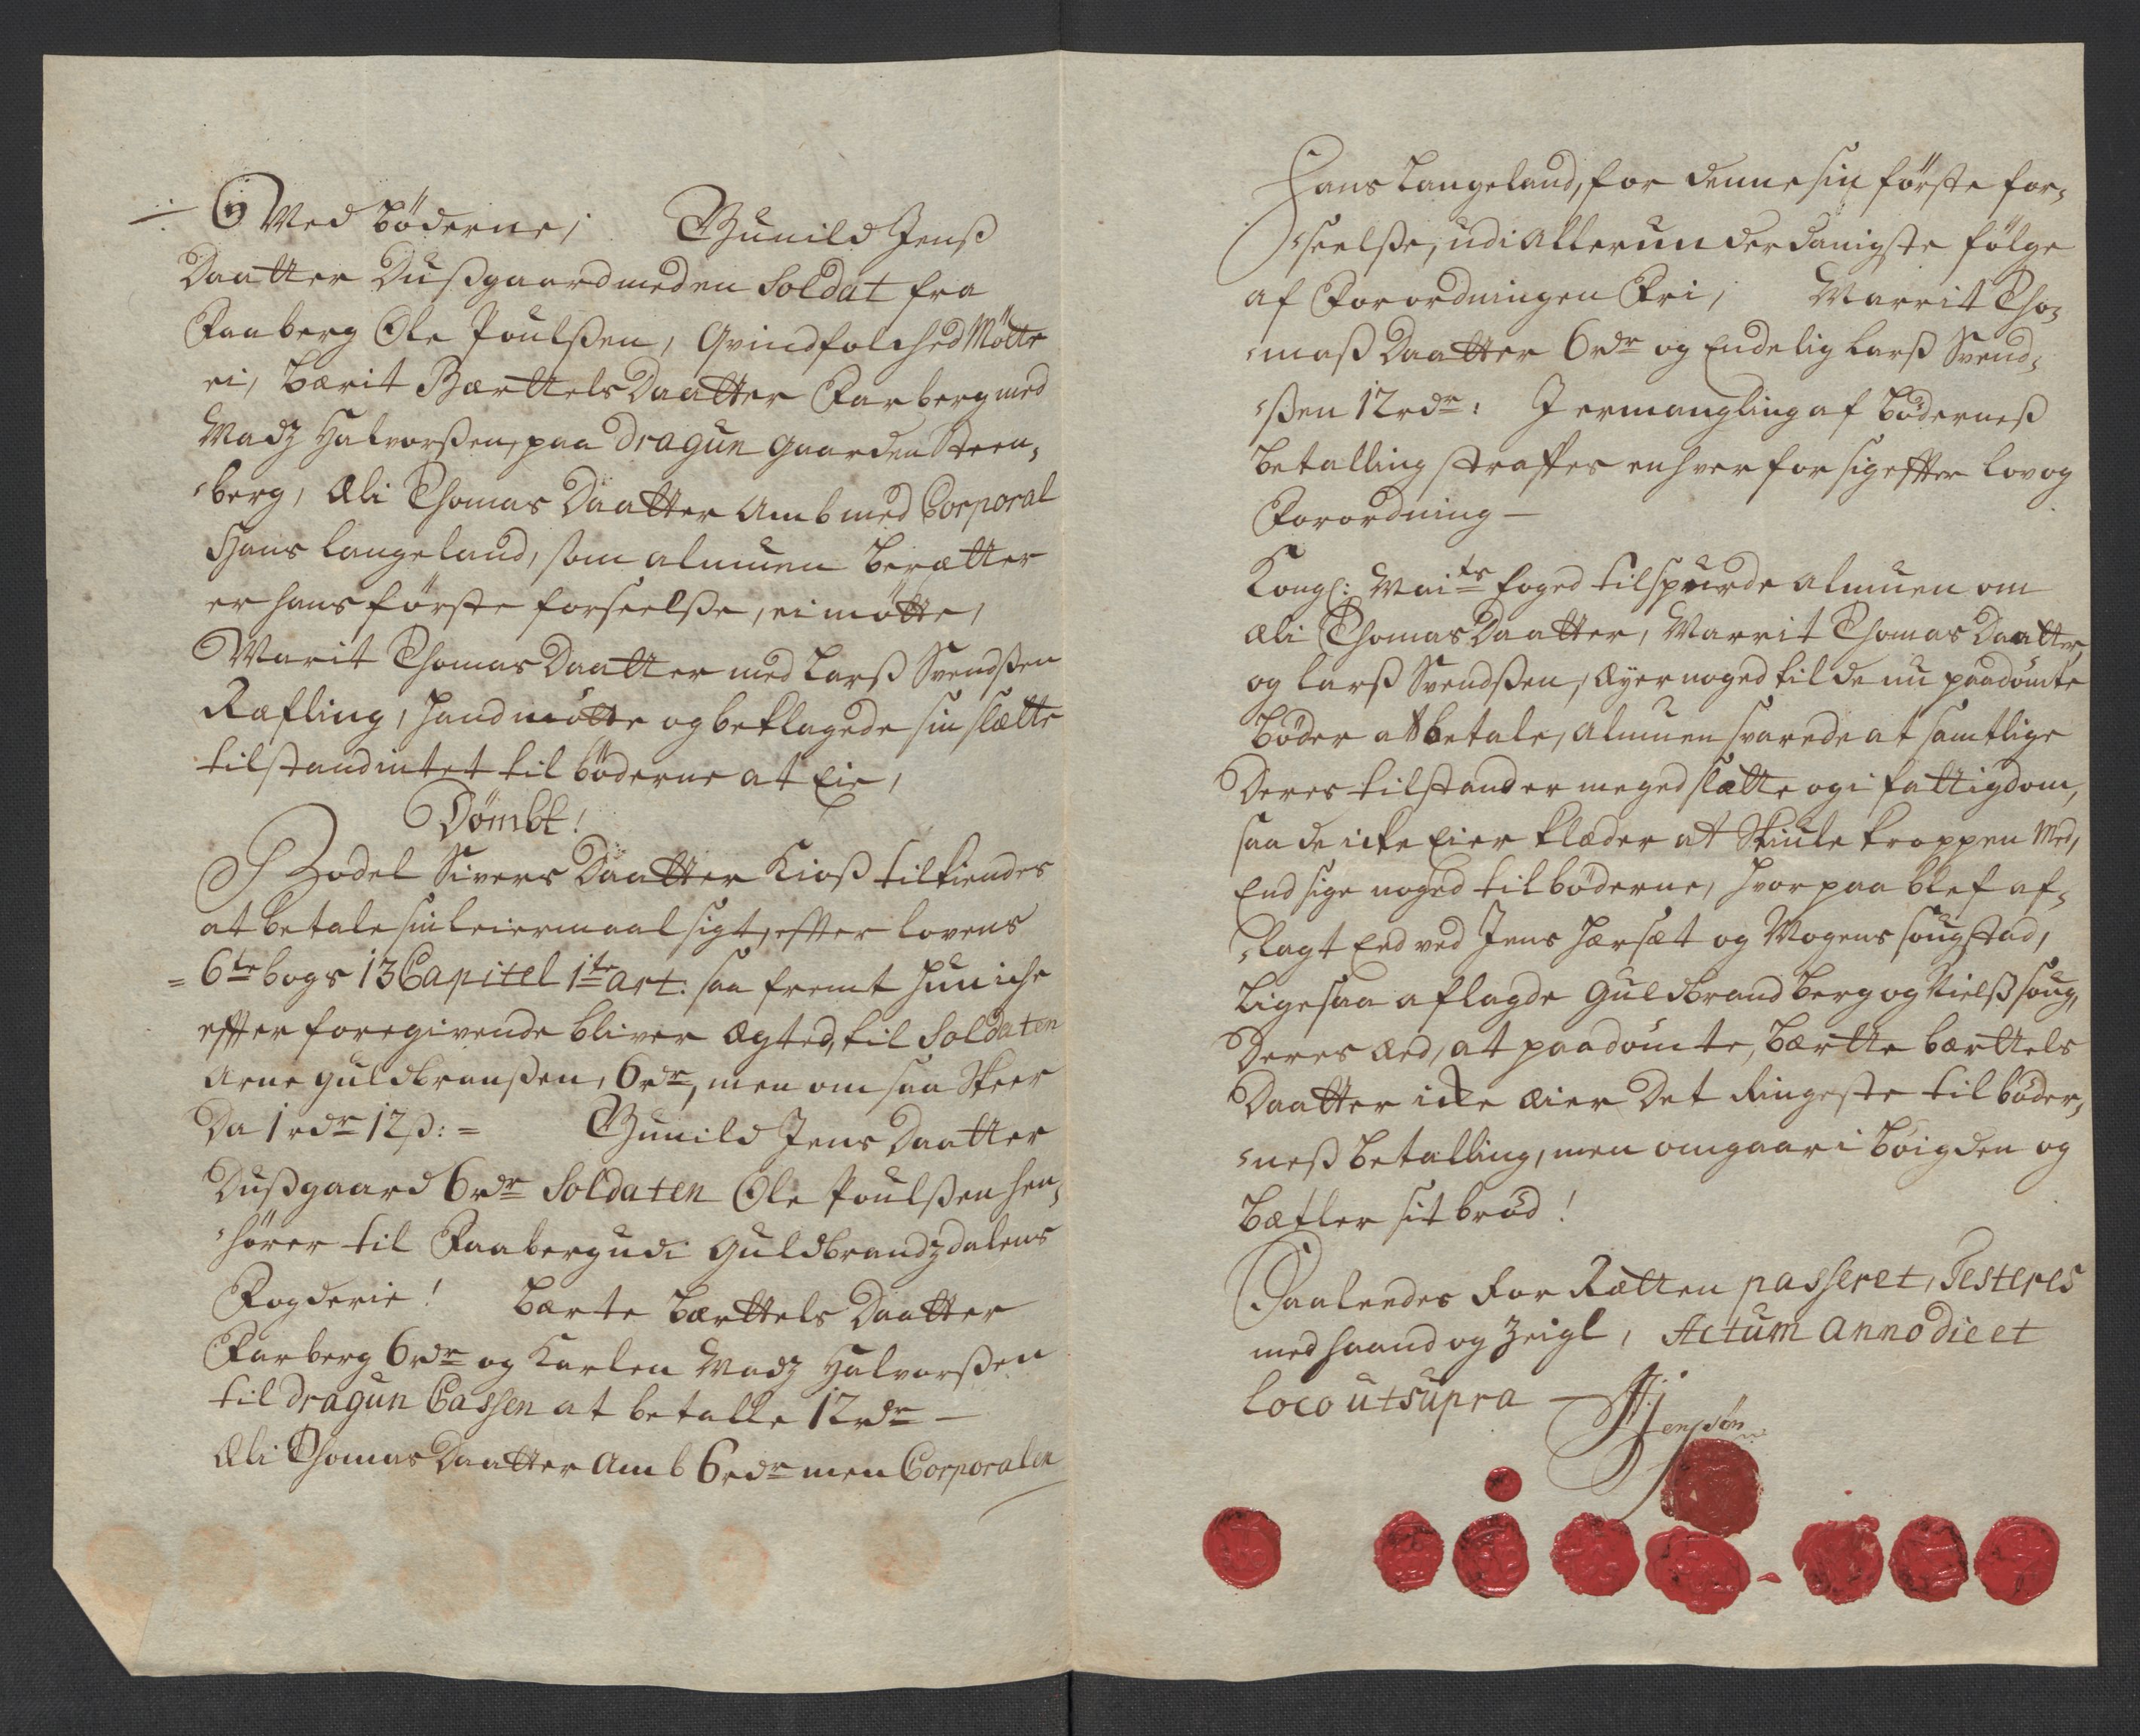 Ved Böderne, Gunild Jenß
Daatter Dußgaard med en Soldat fra
Faaberg Ole Poulßen, Qvindfolched Mötte
ei, Berit BærttelsDaatter Farberg med
Madz Halvorßen, paa dragun gaarden Steen,
berg, Æli Thomas Daatter Amb med Corporal
Hans Langeland, som almuen beretter
er hans förste forseelße, ei mötte,
Marit Thomas Daatter med Larß Svendßen
Ræfling, hand mötte og beklagede sin slette
tilstand intet til böderne at Eie,
Dömbt!
Bodel Sivers Daatter Kioß tilkiendes
at betale sin leiermaals sigt, effter lovens
6te bogs 13 Capitel 1te art: saa fremt hun iche
effter foregivende bliver ægted, til Soldaten
Arne Guldbranßen, 6 rdr, men om saa Skeer
Da 1 rdr 12 ß: = Gunild Jens Daatter
Dußgaard 6 rdr Soldaten Ole Poulßen hen,
hörer til Faaberg udi Guldbrandzdalens
Fogderie! Bærte Bærttels Daatter
Farberg 6 rdr og Karlen Madz Halvorßen
til dragun Cassen at betalle 12 rdr —
Æli Thomas Daatter Amb 6 rdr men Corporalen
Hans Langeland, for denne sin förste for,
seelße, udi Allerunderdanigste fölge
af Forordningen Fri, Marrit Tho,
maß Daatter 6 rdr og Endelig Larß Svend,
ßen 12 rdr: I ermangling af Bödernes
betalling straffes enhver for sig effter lov og
Forordning —
Kongl: Maits foged tilspurde almuen om
Æli Thomas Daatter, Marrit Thomas Daatter,
og Larß Svendßen, æyer noged til de nu paadömte
Böder at betale, almuen svarede at samtlige
Deres tilstand er meged slætte og i fattigdom,
saa de icke Eier klæder at Skiule kroppen Med,
End sige noged til böderne, hvorpaa blef af,
lagt Eed ved Jens Hærsæt og Mogens Sougstad,
Ligesaa aflagde Guldbrand Berg og Nielß Soug,
Deres æd, at paadömte, Bærtte bærttels
Daatter icke æier Det Ringeste til böder,
neß betalling, men omgaar i böigden og
Bætler sit bröd!
Saaledes for Rætten passeret, Testeres
med haand og Zeigl, Actum Anno die et
loco ut supra — Jensön